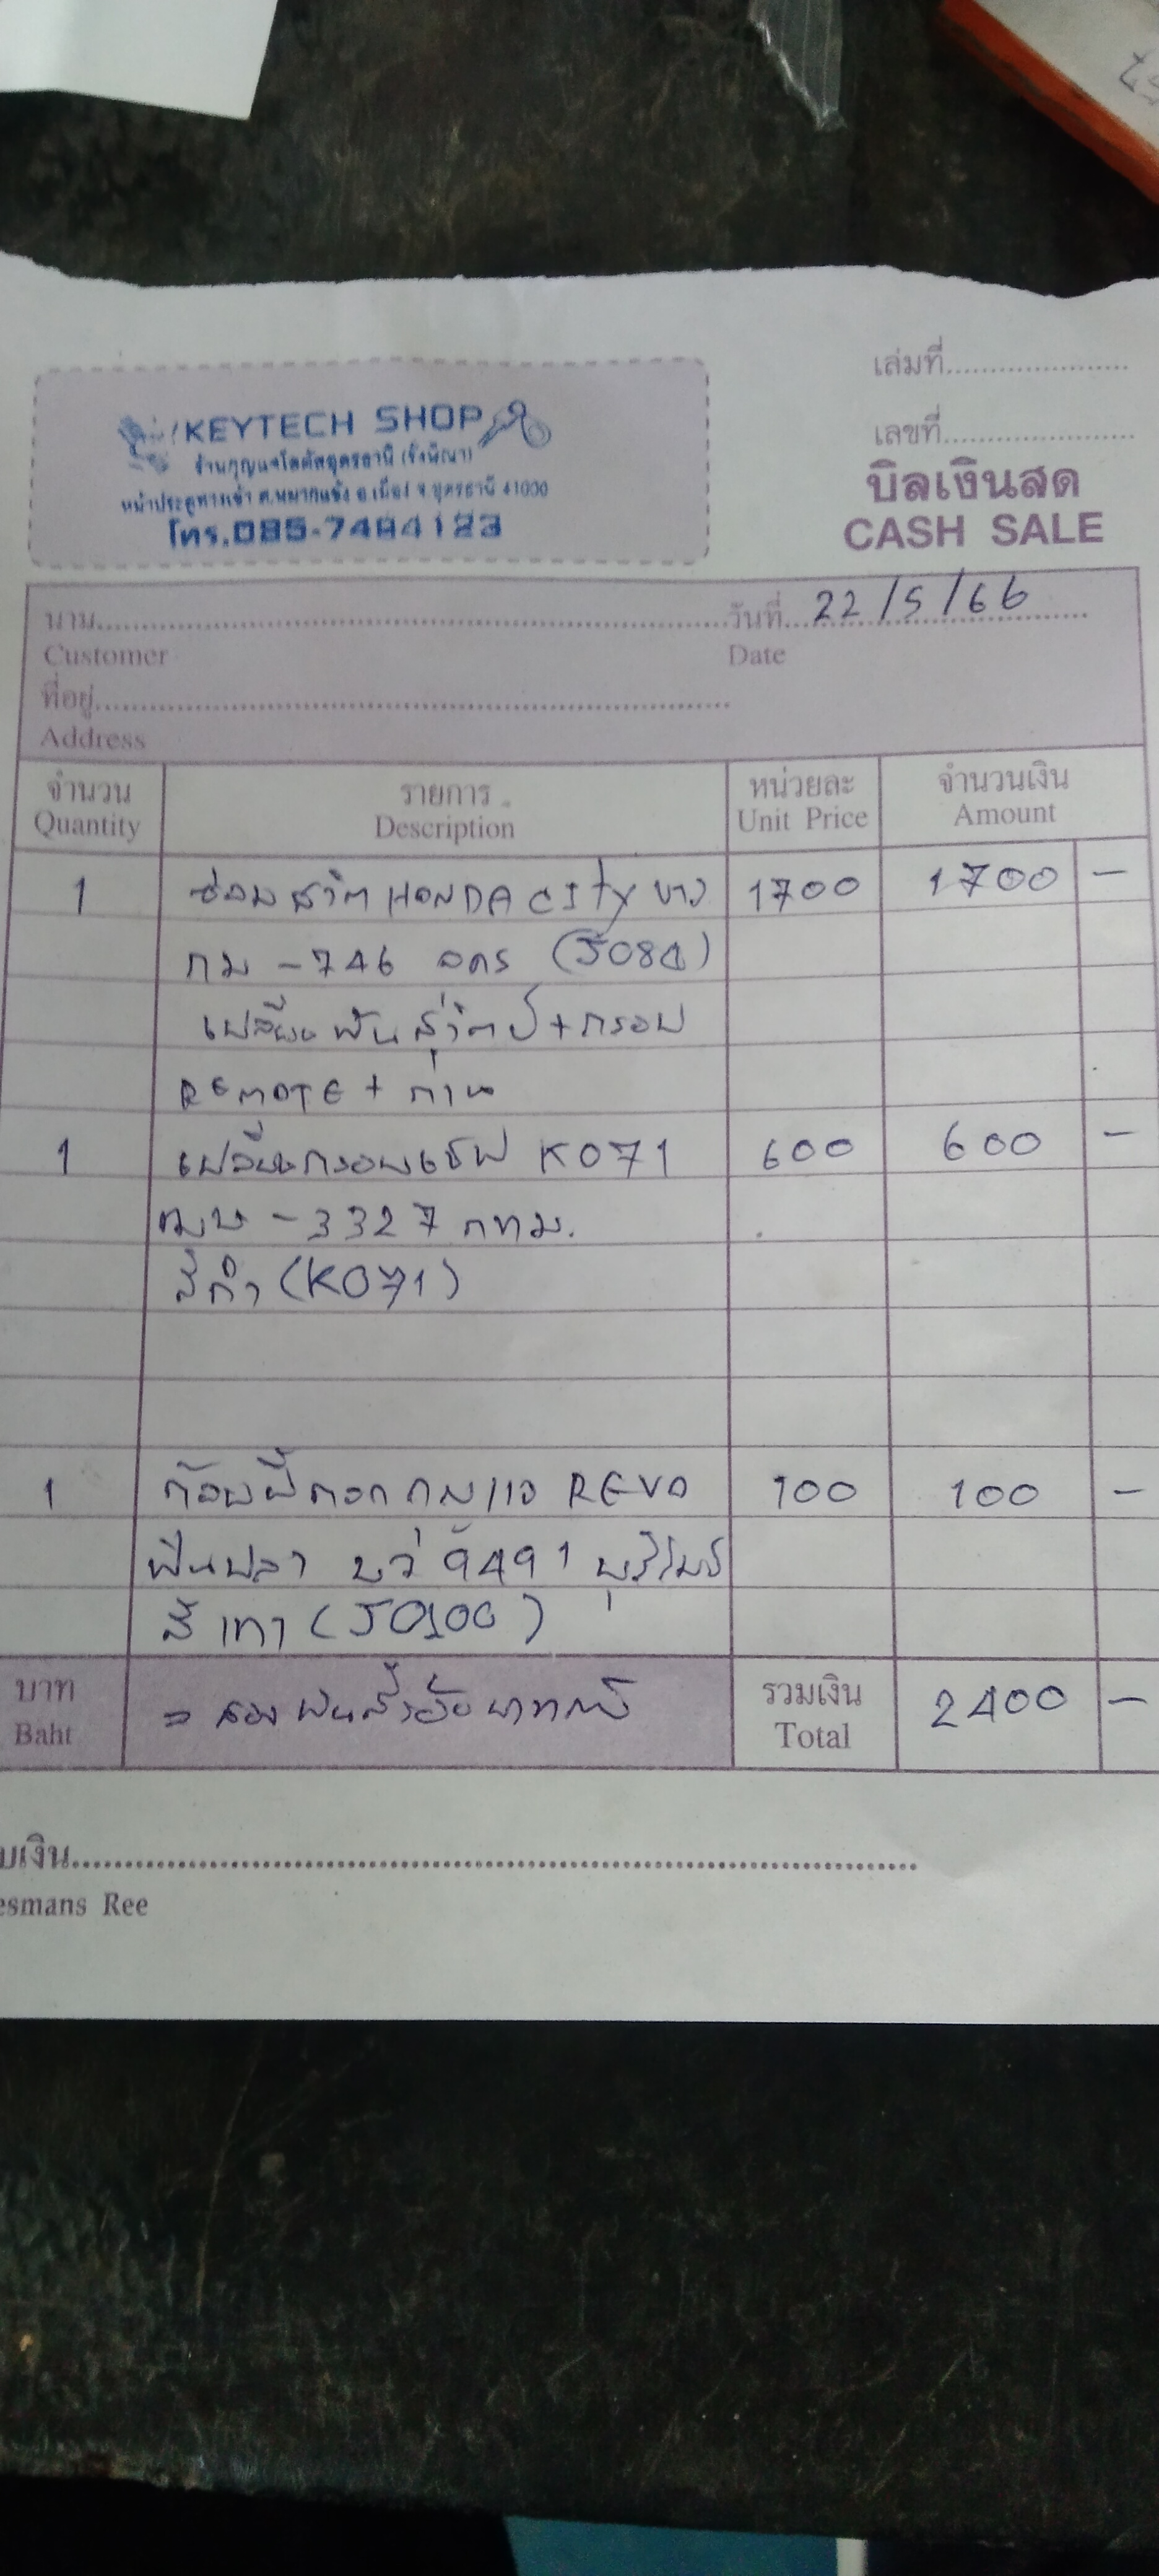 เล่มที่
เลขที่
KEYTECH SHOP
ร้านกุญแจโลตัสอุดรธานี (รังษิณา)
หน้าประตูทางเข้า ต.หมากแข้ง อ.เมือง จ.อุดรธานี 41000
โทร.085-7484123
บิลเงินสด
CASH SALE
นาม วันที่ 22/5/66
Customer Date
ที่อยู่
Address
จำนวน รายการ หน่วยละ จำนวนเงิน
Quantity Description Unit Price Amount
1 ซ่อม HONDA CITY ขาว 1700 1700 -
กม-746 อดร
เปลี่ยน + กรอบ
REMOTE + ถ่าน
1 เปลี่ยนกรอบเซ็ฟ K071 600 600 -
-3327 กทม.
สีดำ (K071)
1 REVO 100 100 -
9491 บุรีรัมย์
สีเทา (JO100)
บาท = สองพันสี่ร้อยบาท รวมเงิน 2400 -
Baht Total
บเงิน
esmans Ree